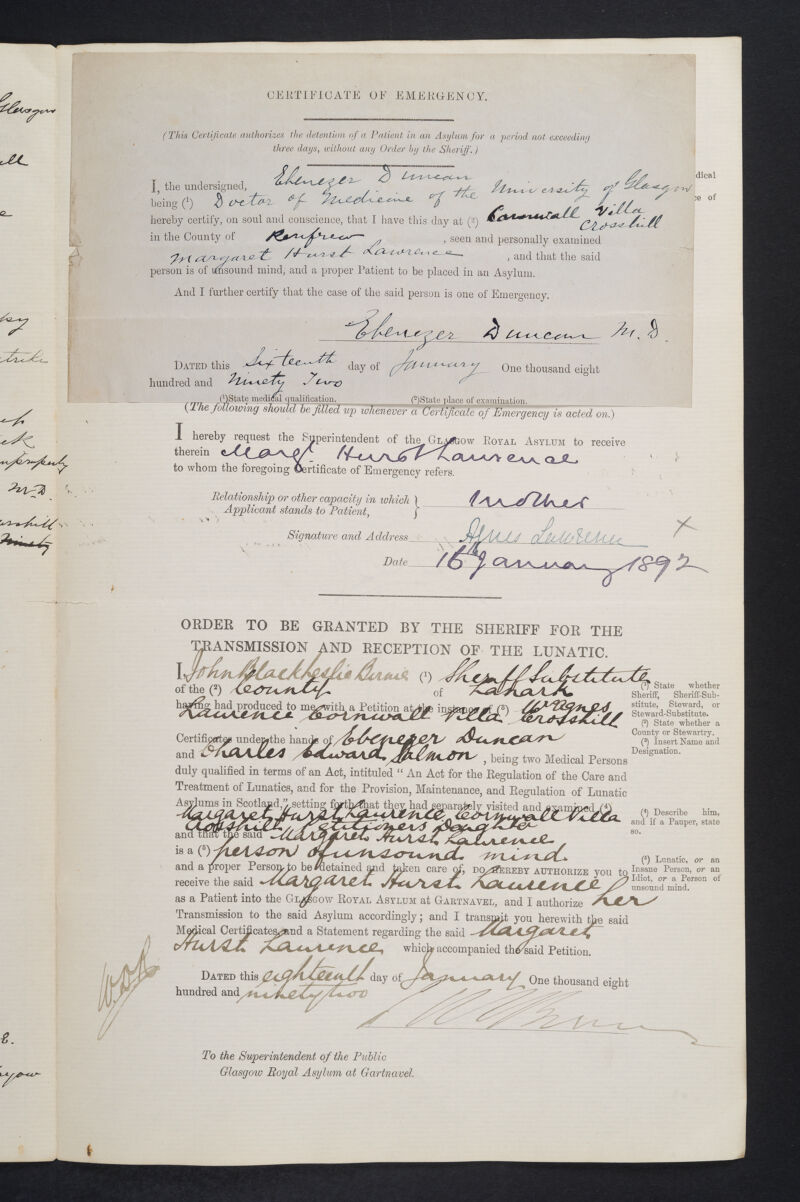 CERTIFICATE OF EMERGENCY.
(This Certificate authorizes the detention of a Patient in an Asylum for a period not exceeding
three days, without any Order by the Sheriff.)
I, the undersigned, Ebenezer Duncan
being (¹) Doctor of Medicine of the University of Glasgow
hereby certify, on soul and conscience, that I have this day at (²) Cornwall Villa
Crosshill
in the County of Renfrew , seen and personally examined
Margaret Hurst Lawrence , and that the said
person is of unsound mind, and a proper Patient to be placed in an Asylum.
And I further certify that the case of the said person is one of Emergency.
Ebenezer Duncan M.D.
DATED this Sixteenth day of January One thousand eight
hundred and Ninety Two
(¹)State medical qualification. (²)State place of examination.
(The following should be filled up whenever a Certificate of Emergency is acted on.)
I hereby request the Superintendent of the GLASGOW ROYAL ASYLUM to receive
therein Margt. Hurst Laurence
to whom the foregoing Certificate of Emergency refers.
Relationship or other capacity in which
Applicant stands to Patient, } Mother
Signature and Address Agnes Lawrence ×
Date 16th January 1892
ORDER TO BE GRANTED BY THE SHERIFF FOR THE
TRANSMISSION AND RECEPTION OF THE LUNATIC.
I, John Black Leslie Birnie (¹) Sheriff Substitute
of the (²) County of Lanark
having had produced to me with a Petition at the instance of (³) Mrs Agnes
Laurence Cornwall Villa Crosshill
Certificates under the hands of Ebenezer Duncan
and Charles Edward Salmon , being two Medical Persons
duly qualified in terms of an Act, intituled "An Act for the Regulation of the Care and
Treatment of Lunatics, and for the Provision, Maintenance, and Regulation of Lunatic
Asylums in Scotland," setting forth that they had separately visited and examined (⁴)
Margaret Hurst Laurence Cornwall Villa
Crosshill Petitioners Daughter
and that the said Margaret Hurst Laurence
is a (⁵) person of unsound mind
and a proper Person to be detained and taken care of, DO HEREBY AUTHORIZE you to
receive the said Margaret Hurst Laurence
as a Patient into the GLASGOW ROYAL ASYLUM at GARTNAVEL, and I authorize her
Transmission to the said Asylum accordingly; and I transmit you herewith the said
Medical Certificates, and a Statement regarding the said Margaret
Hurst Laurence which accompanied the said Petition.
DATED this eighteenth day of January One thousand eight
hundred and ninety two
To the Superintendent of the Public
Glasgow Royal Asylum at Gartnavel.
(¹) State whether
Sheriff, Sheriff-Sub-
stitute, Steward, or
Steward-Substitute.
(²) State whether a
County or Stewartry.
(³) Insert Name and
Designation.
(⁴) Describe him,
and if a Pauper, state
so.
(⁵) Lunatic, or an
Insane Person, or an
Idiot, or a Person of
unsound mind.